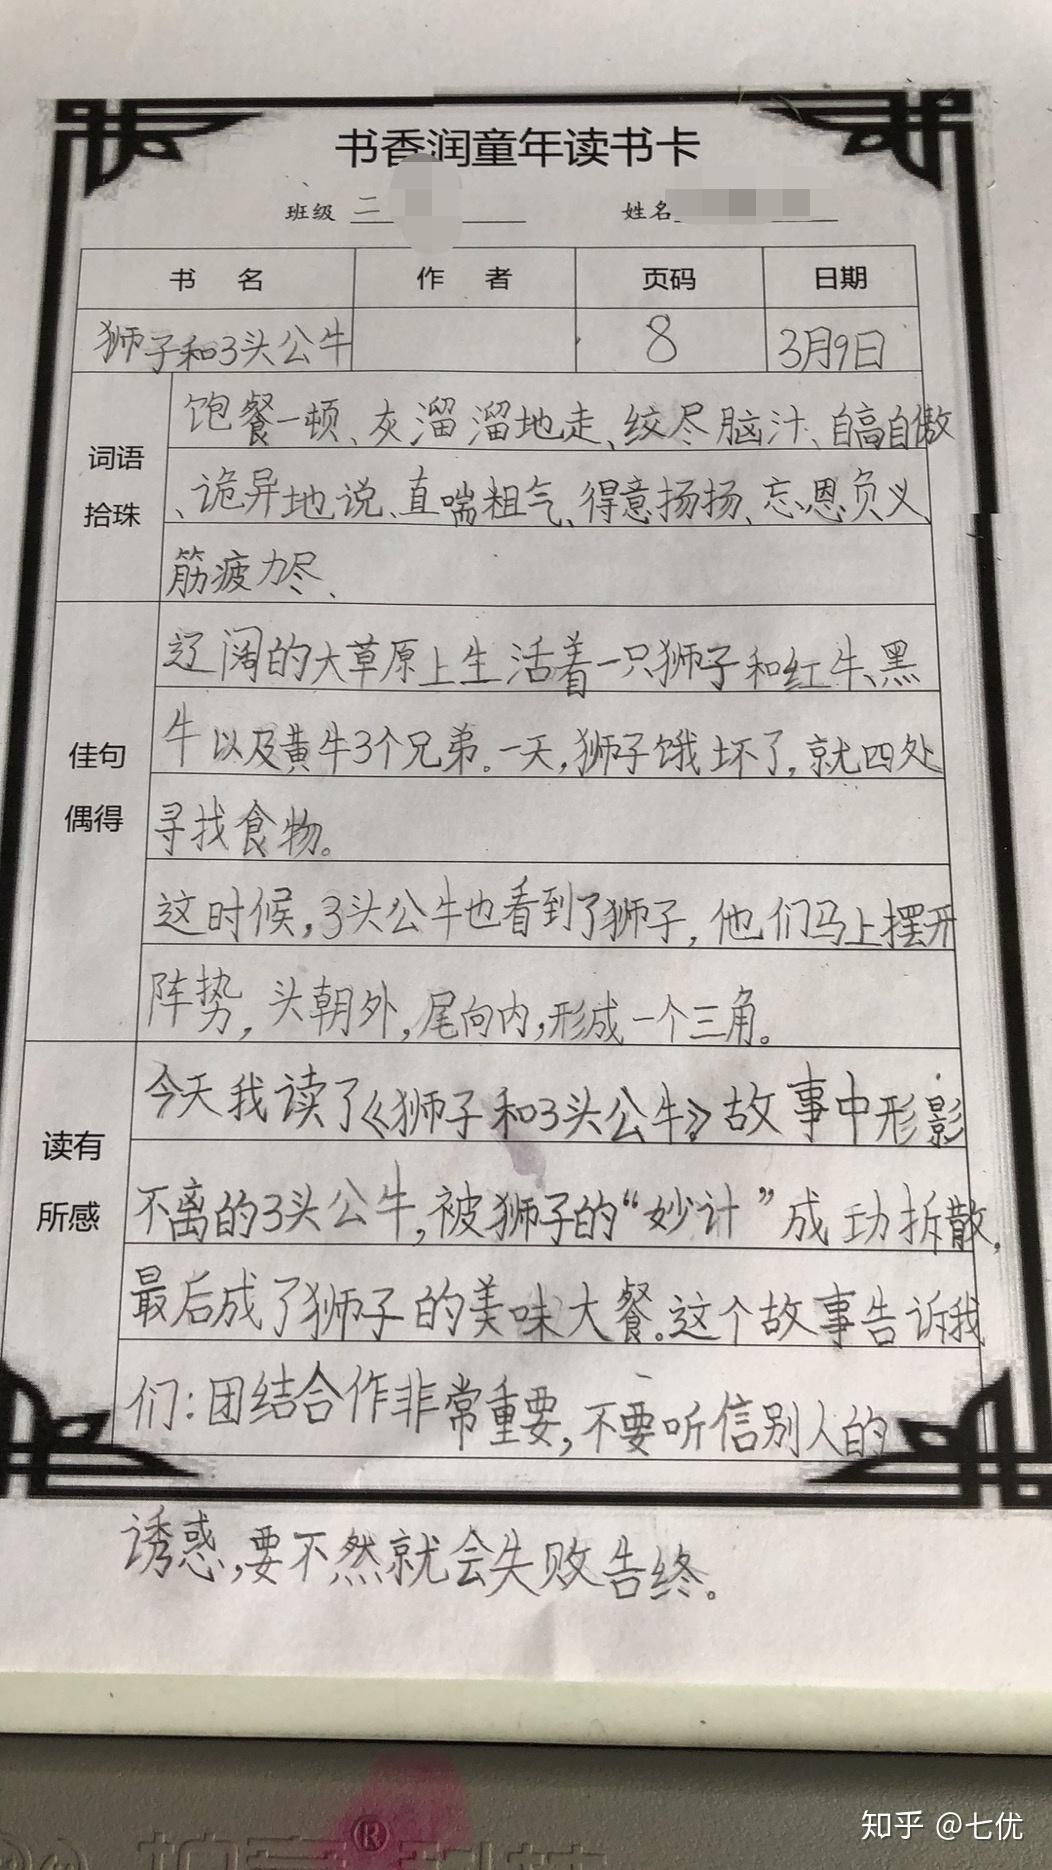 书香润童年读书卡
班级 二 姓名
书 名 作 者 页码 日期
狮子和3头公牛 8 3月9日
词语
拾珠
饱餐一顿、灰溜溜地走、绞尽脑汁、自高自傲
、诡异地说、直喘粗气、得意扬扬、忘恩负义、
筋疲力尽、
佳句
偶得
辽阔的大草原上生活着一只狮子和红牛、黑
牛以及黄牛3个兄弟。一天,狮子饿坏了,就四处
寻找食物。
这时候,3头公牛也看到了狮子,他们马上摆开
阵势,头朝外,尾向内,形成一个三角。
读有
所感
今天我读了《狮子和3头公牛》故事中形影
不离的3头公牛,被狮子的“妙计”成功拆散,
最后成了狮子的美味大餐。这个故事告诉我
们:团结合作非常重要,不要听信别人的
诱惑,要不然就会失败告终。
知乎 @七优